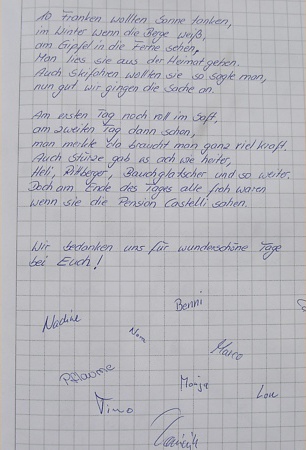 10 Franken wollten Sonne tanken,
im Winter wenn die Berge weiß,
am Gipfel in die Ferne sehen,
Man lies sie aus der Heimat gehen.
Auch Skifahren wollten sie so sagte man,
nun gut wir gingen die Sache an.
Am ersten Tag noch voll im Saft,
am zweiten Tag dann schon,
man merkte da braucht man ganz viel Kraft.
Auch Stürze gab es ach wie heiter,
Heli, Rittberger, Bauchplatscher und so weiter.
Doch am Ende des Tages alle froh waren
wenn sie die Pension Castelli sahen.
Wir bedanken uns für wunderschöne Tage
bei Euch!
Benni
Nadine
Marco
Pflaume
Lou
Timo